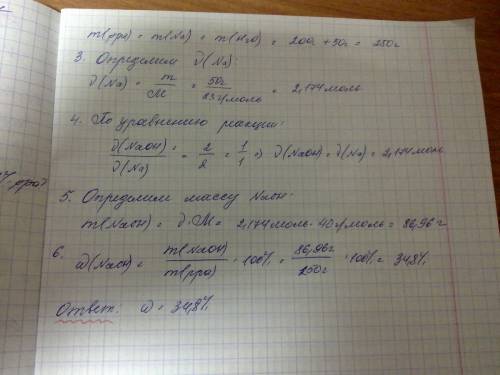 m(рра) = m(Na) = m(H₂O) = 200г + 50г = 250г
3. Определим ∂(Na):
∂(Na) = m/M = 50г/23г/моль = 2,174моль
4. По уравнению реакции:
∂(NaOH)/∂(Na) = 2/2 = 1/1 ⇒ ∂(NaOH) = ∂(Na) = 2,174моль
5. Определим массу NaOH:
m(NaOH) = ∂·M = 2,174моль · 40г/моль = 86,96г
6. ω(NaOH) = m(NaOH)/m(рра) · 100% = 86,96г/250г · 100% = 34,8%
Ответ: ω = 34,8%